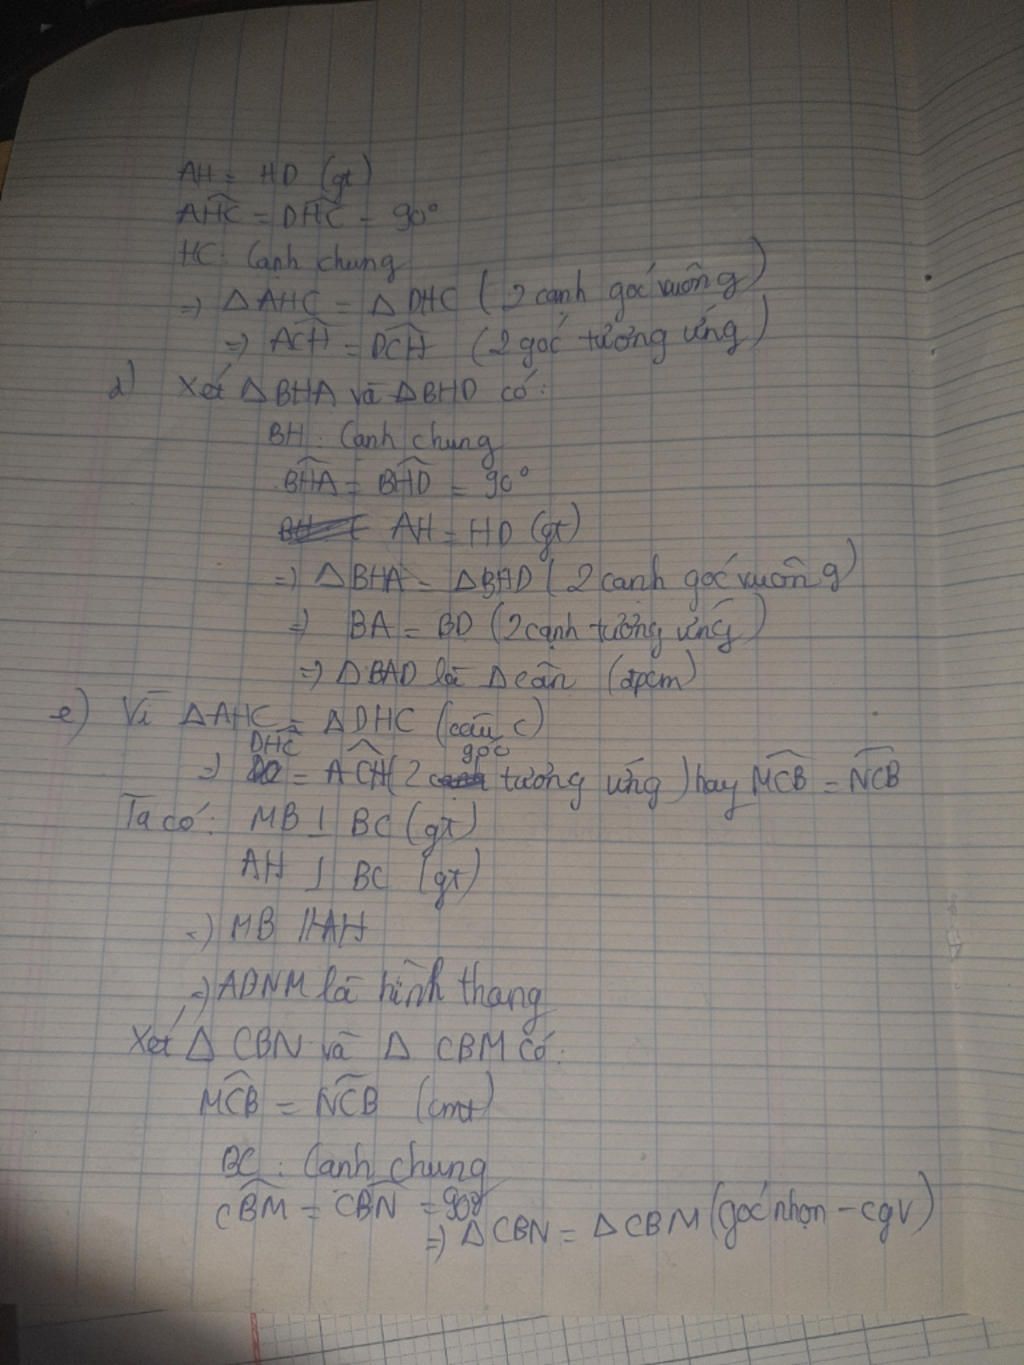 AH = HD (gt)
AHC = DHC = 90°
HC: Cạnh chung
=> Δ AHC = Δ DHC (2 cạnh góc vuông)
=> ACH = DCH (2 góc tương ứng)
d) Xét ΔBHA và ΔBHD có:
BH: Cạnh chung
BHA = BHD = 90°
AH = HD (gt)
=> ΔBHA = ΔBAD (2 cạnh góc vuông)
=> BA = BD (2 cạnh tương ứng)
=> ΔBAD là Δ cân (đpcm)
e) Vì ΔAHC = ΔDHC (câu c)
=> DHC = ACH (2 góc tương ứng) hay MCB = NCB
Ta có: MB ⊥ BC (gt)
AH ⊥ BC (gt)
=> MB // AH
=> ADNM là hình thang
Xét Δ CBN và Δ CBM có:
MCB = NCB (cmt)
BC: Cạnh chung
CBM = CBN = 90°
=> Δ CBN = Δ CBM (góc nhọn - cgv)